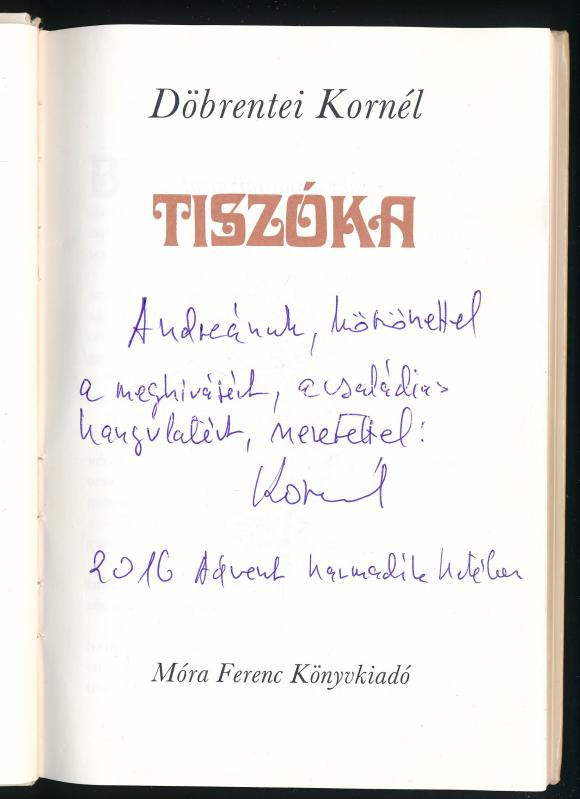 Döbrentei Kornél
TISZÓKA
Andreának, köszönettel
a meghívásért, a családias
hangulatért, szeretettel:
Kornél
2016 Advent harmadik hetében
Móra Ferenc Könyvkiadó